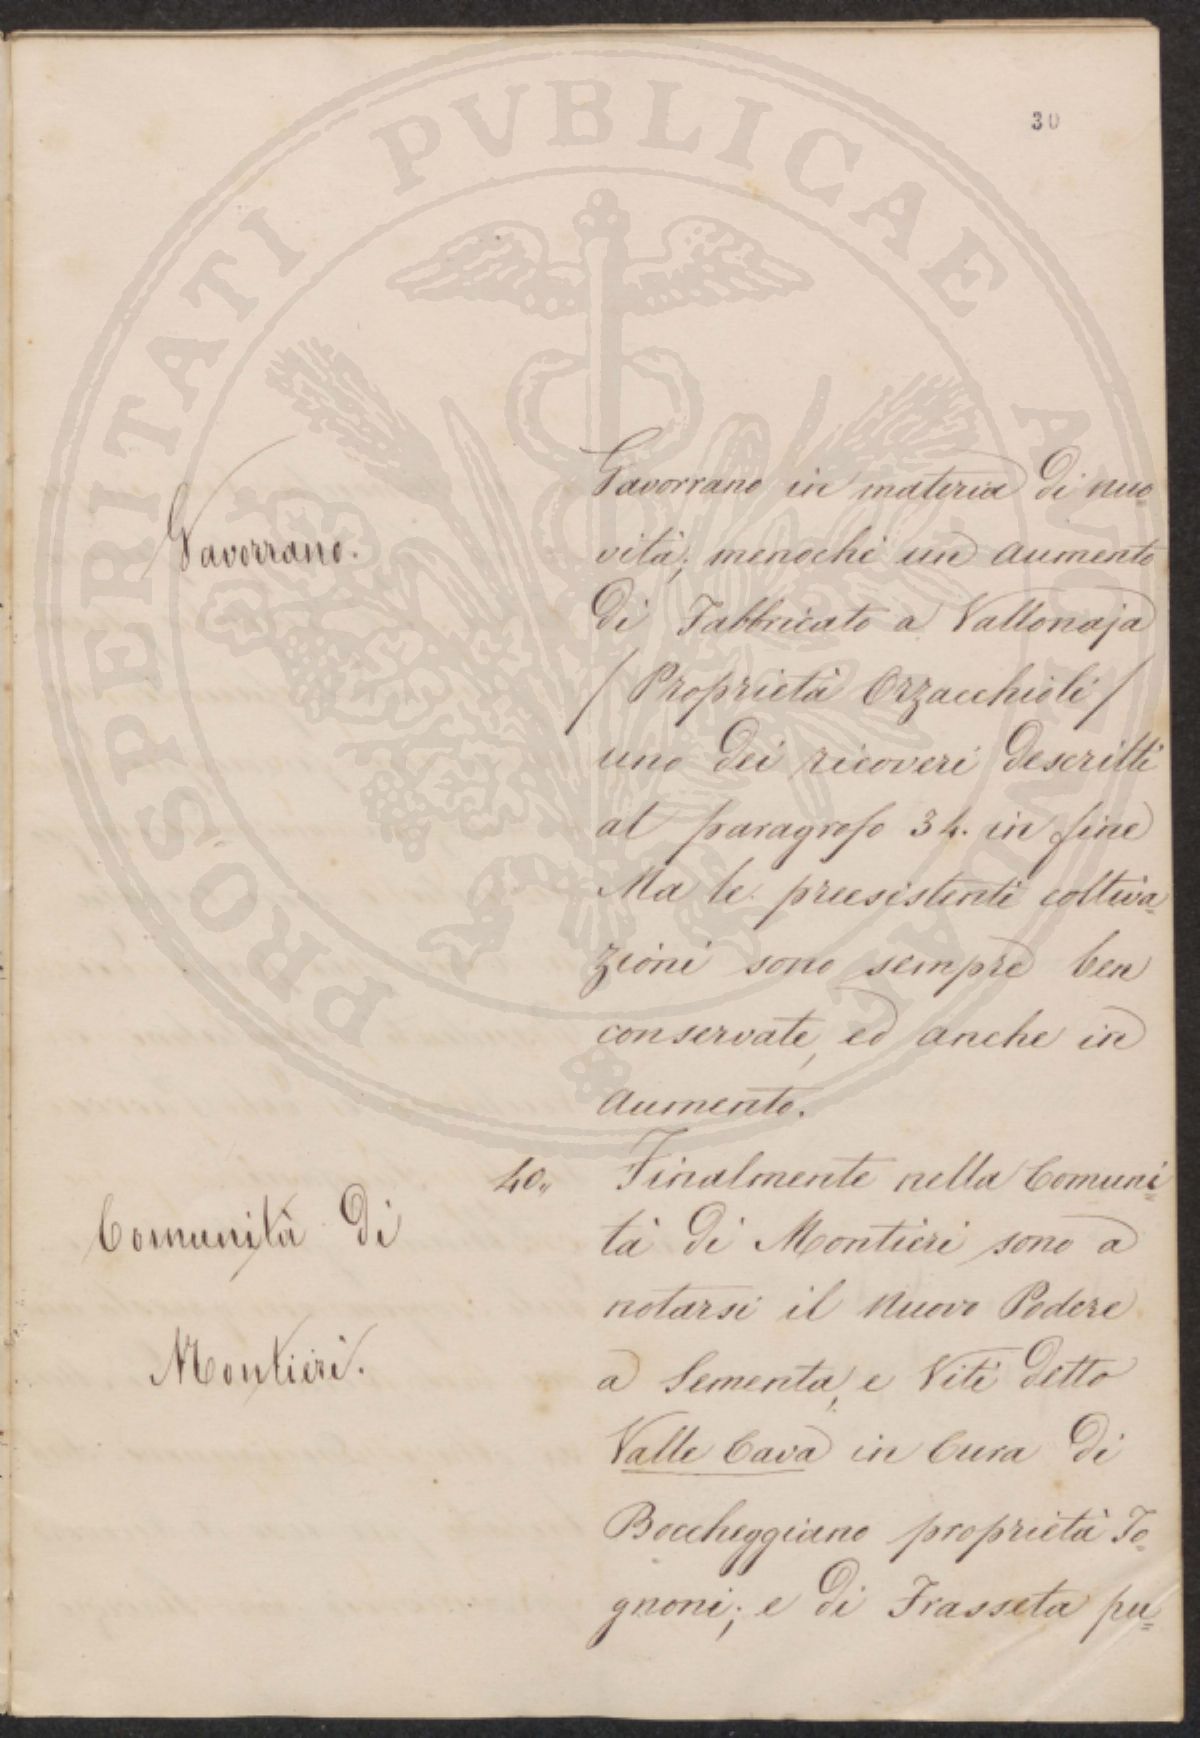 30
PROSPERITATI PVBLICAE AVGENDAE
Gavorrano.
Gavorrano in materia di nuo=
vità; menochè un aumento
di Fabbricato a Vallonaja
/ Proprietà Orzacchioli /
uno dei ricoveri descritti
al paragrofo 34. in fine
Ma le preesistenti coltiva=
zioni sono sempre ben
conservate, ed anche in
aumento.
Comunità di
Montieri.
40,, Finalmente nella Comuni=
tà di Montieri sono a
notarsi il nuovo Podere
a Sementa, e Viti detto
Valle Cava in Cura di
Boccheggiano proprietà To=
gnoni; e di Frasseta pu=